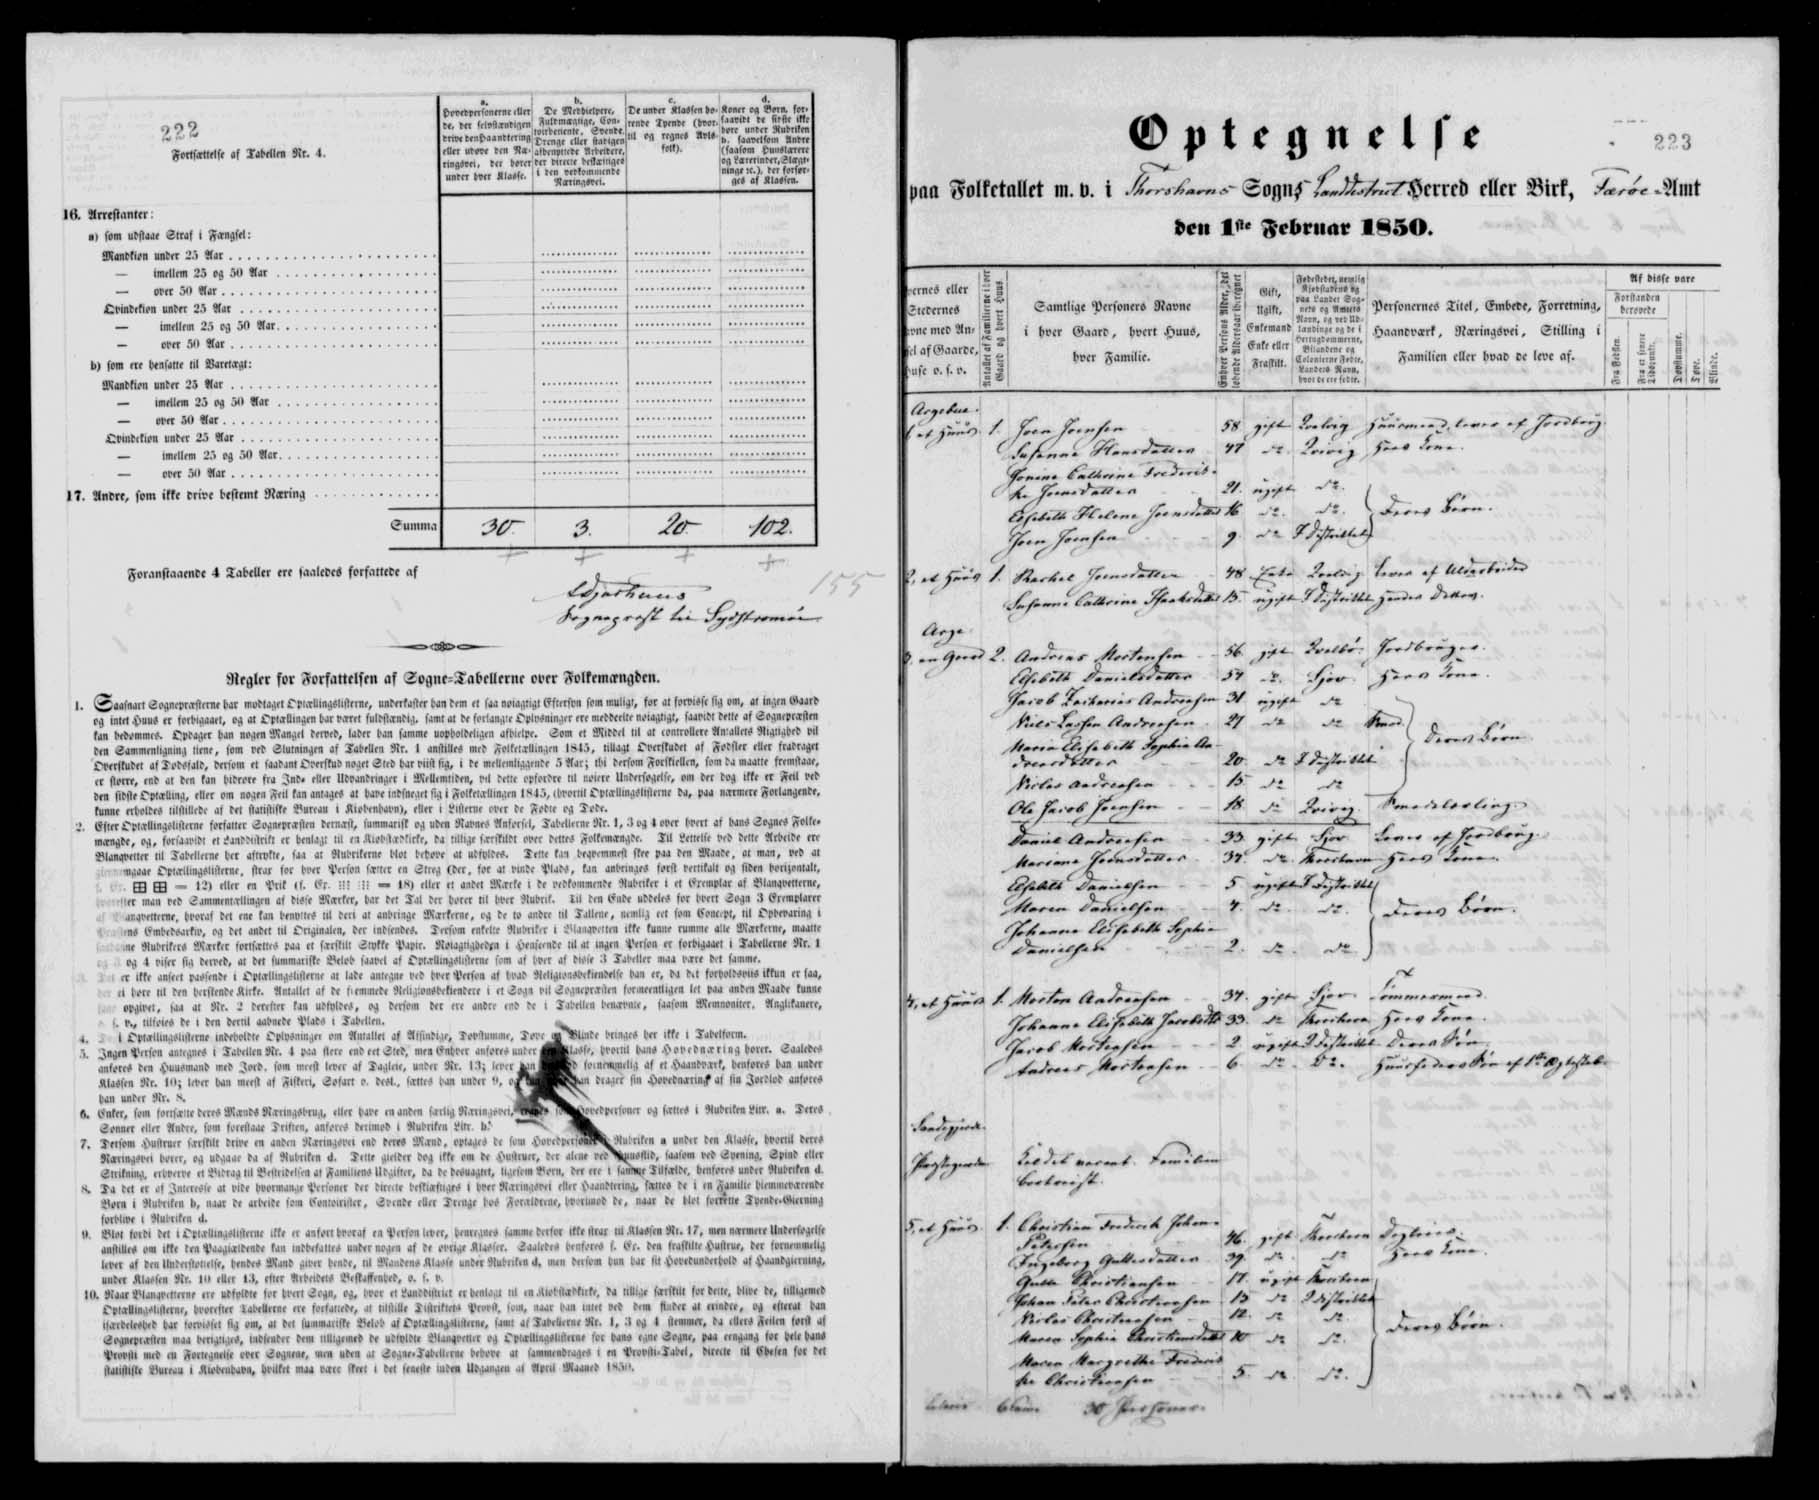 222
Fortsættelse af Tabellen Nr. 4.
a.
Hovedpersonerne eller
de, der selvstændigen
drive den Haandtering
eller udøve den Næ-
ringsvei, der hører
under hver Klasse.
b.
De Medhielpere,
Fuldmægtige, Con-
toirbetiente, Svende,
Drenge eller stadigen
afbenyttede Arbeidere,
der directe beskæftiges
i den vedkommende
Næringsvei.
c.
De under Klassen hø-
rende Tyende (hvor-
til og regnes Avls-
folk).
d.
Koner og Børn, for-
saavidt de første ikke
høre under Rubriken
b. saavelsom Andre
(saasom Huuslærere
og Lærerinder, Slægt-
ninge ꝛc.), der forsør-
ges af Klassen.
16. Arrestanter:
a) som udstaae Straf i Fængsel:
Mandkiøn under 25 Aar
— imellem 25 og 50 Aar
— over 50 Aar
Qvindekiøn under 25 Aar
— imellem 25 og 50 Aar
— over 50 Aar
b) som ere hensatte til Varetægt:
Mandkiøn under 25 Aar
— imellem 25 og 50 Aar
— over 50 Aar
Qvindekiøn under 25 Aar
— imellem 25 og 50 Aar
— over 50 Aar
17. Andre, som ikke drive bestemt Næring
Summa 30. 3. 20. 102.
155
Foranstaaende 4 Tabeller ere saaledes forfattede af
Sognepræst til Sydstrømøe
Regler for Forfattelsen af Sogne-Tabellerne over Folkemængden.
1. Saasnart Sognepræsterne har modtaget Optællingslisterne, underkaster han dem et saa nøiagtigt Eftersyn som muligt, for at forvisse sig om, at ingen Gaard
og intet Huus er forbigaaet, og at Optællingen har været fuldstændig, samt at de forlangte Oplysninger ere meddeelte nøiagtigt, saavidt dette af Sognepræsten
kan bedømmes. Opdager han nogen Mangel derved, lader han samme uopholdeligen afhielpe. Som et Middel til at controllere Antallets Rigtighed vil
den Sammenligning tiene, som ved Slutningen af Tabellen Nr. 1 anstilles med Folketællingen 1845, tillagt Overskudet af Fødsler eller fradraget
Overskudet af Dødsfald, dersom et saadant Overskud noget Sted har viist sig, i de mellemliggende 5 Aar; thi dersom Forskiellen, som da maatte fremstaae,
er større, end at den kan hidrøre fra Ind- eller Udvandringer i Mellemtiden, vil dette opfordre til nøiere Undersøgelse, om der dog ikke er Feil ved
den sidste Optælling, eller om nogen Feil kan antages at have indsneget sig i Folketællingen 1845, (hvortil Optællingslisterne da, paa nærmere Forlangende,
kunne erholdes tilstillede af det statistiske Bureau i Kiøbenhavn), eller i Listerne over de Fødte og Døde.
2. Efter Optællingslisterne forfatter Sognepræsten dernæst, summarisk og uden Navnes Anførsel, Tabellerne Nr. 1, 3 og 4 over hvert af hans Sognes Folke-
mængde, og, forsaavidt et Landdistrikt er henlagt til en Kiøbstædkirke, da tillige særskildt over dettes Folkemængde. Til Lettelse ved dette Arbeide ere
Blanqvetter til Tabellerne her aftrykte, saa at Rubrikerne blot behøve at udfyldes. Dette kan beqvemmest skee paa den Maade, at man, ved at
giennemgaae Optællingslisterne, for hver Person sætter en Streg (der, for at vinde Plads, kan anbringes først vertikalt og siden horizontalt,
= 12) eller en Prik (f. Ex. = 18) eller et andet Mærke i de vedkommende Rubriker i et Exemplar af Blanqvetterne,
hvorefter man ved Sammentællingen af disse Mærker, har det Tal der hører til hver Rubrik. Til den Ende uddeles for hvert Sogn 3 Exemplarer
af Blanqvetterne, hvoraf det ene kan benyttes til deri at anbringe Mærkerne, og de to andre til Tallene, nemlig eet som Concept, til Opbevaring i
Præstens Embedsarkiv, og det andet til Originalen, der indsendes. Dersom enkelte Rubriker i Blanqvetten ikke kunne rumme alle Mærkerne, maatte
saadanne Rubrikers Mærker fortsættes paa et særskilt Stykke Papir. Nøiagtigheden i Henseende til at ingen Person er forbigaaet i Tabellerne Nr. 1
og 3 og 4 viser sig derved, at det summariske Beløb saavel af Optællingslisterne som af hver af disse 3 Tabeller maa være det samme.
3. Det er ikke anseet passende i Optællingslisterne at lade antegne ved hver Person af hvad Religionsbekiendelse han er, da det forholdsviis ikkun er saa,
der ei høre til den herskende Kirke. Antallet af de fremmede Religionsbekiendere i et Sogn vil Sognepræsten formeentligen let paa anden Maade kunne
opgivet, saa at Nr. 2 derefter kan udfyldes, og dersom der ere andre end de i Tabellen benævnte, saasom Mennoniter, Anglikanere,
o. s. v., tilføies de i den dertil aabnede Plads i Tabellen.
4. De i Optællingslisterne indeholdte Oplysninger om Antallet af Afsindige, Døvstumme, Døve og Blinde bringes her ikke i Tabelform.
5. Ingen Person antegnes i Tabellen Nr. 4 paa flere end eet Sted, men Enhver anføres under den Klasse, hvortil hans Hovednæring hører. Saaledes
anføres den Huusmand med Jord, som meest lever af Dagleie, under Nr. 13; lever han fornemmelig af et Haandværk, henføres han under
Klassen Nr. 10; lever han meest af Fiskeri, Søfart o. desl., sættes han under 9, og han drager sin Hovednæring af sin Jordlod anføres
han under Nr. 8.
6. Enker, som fortsætte deres Mænds Næringsbrug, eller have en anden særlig Næringsvei, som Hovedpersoner og sættes i Rubriken Litr. a. Deres
Sønner eller Andre, som forestaae Driften, anføres derimod i Rubriken Litr. b.
7. Dersom Hustruer særskilt drive en anden Næringsvei end deres Mænd, optages de som Hovedpersoner i Rubriken a under den Klasse, hvortil deres
Næringsvei hører, og udgaae da af Rubriken d. Dette gielder dog ikke om de Hustruer, der alene ved Huusflid, saasom ved Spening, Spind eller
Strikning, erhverve et Bidrag til Bestridelsen af Familiens Udgifter, da de desuagtet, ligesom Børn, der ere i samme Tilfælde, henføres under Rubriken d.
8. Da det er af Interesse at vide hvormange Personer der directe beskiæftiges i hver Næringsvei eller Haandtering, sættes de i en Familie hiemmeværende
Børn i Rubriken b, naar de arbeide som Contoirister, Svende eller Drenge hos Forældrene, hvorimod de, naar de blot forrette Tyende-Gierning
forblive i Rubriken d.
9. Blot fordi det i Optællingslisterne ikke er anført hvoraf en Person lever, henregnes samme derfor ikke strax til Klassen Nr. 17, men nærmere Undersøgelse
anstilles om ikke den Paagiældende kan indbefattes under nogen af de øvrige Klasser. Saaledes henføres f. Ex. den fraskilte Hustrue, der fornemmelig
lever af den Understøttelse, hendes Mand giver hende, til Mandens Klasse under Rubriken d, men dersom hun har sit Hovedunderhold af Haandgierning,
under Klassen Nr. 10 eller 13, efter Arbeidets Beskaffenhed, o. s. v.
10. Naar Blanqvetterne ere udfyldte for hvert Sogn, og, hvor et Landdistrict er henlagt til en Kiøbstædkirke, da tillige særskilt for dette, blive de, tilligemed
Optællingslisterne, hvorefter Tabellerne ere forfattede, at tilstille Distriktets Provst, som, naar han intet ved dem finder at erindre, og efterat han
isærdeleshed har forvisset sig om, at det summariske Beløb af Optællingslisterne, samt af Tabellerne Nr. 1, 3 og 4 stemmer, da ellers Feilen først af
Sognepræsten maa berigtiges, indsender dem tilligemed de udfyldte Blanqvetter og Optællingslisterne for hans egne Sogne, paa eengang for hele hans
Provsti med en Fortegnelse over Sognene, men uden at Sogne-Tabellerne behøve at sammendrages i en Provsti-Tabel, directe til Chefen for det
statistiske Bureau i Kiøbenhavn, hvilket maa være skeet i det seneste inden Udgangen af April Maaned 1850.
223
Optegnelse
paa Folketallet m. v. i Thorshavns Sogns Landdistrict Herred eller Birk, Færøe Amt
den 1ste Februar 1850.
Stedernes
Navne med An-
sel af Gaarde,
Huse o. s. v.
Antallet af Familierne i hver
Gaard og hvert Huus.
Samtlige Personers Navne
i hver Gaard, hvert Huus,
hver Familie.
Enhver Persons Alder, det
løbende Aldersaar iberegnet
Gift,
Ugift,
Enkemand
Enke eller
Fraskilt.
Fødestedet, nemlig
Kiøbstadens og
paa Landet Sog-
nets og Amtets
Navn, og ved Ud-
lændinge og de i
Hertugdømmerne,
Bilandene og
Colonierne Fødte,
Landets Navn,
hvor de ere fødte.
Personernes Titel, Embede, Forretning,
Haandværk, Næringsvei, Stilling i
Familien eller hvad de leve af.
Af disse vare
Forstanden
berøvede
Fra Fødslen.
Fra et senere
Tidspunkt.
Døvstumme.
Døve.
Blinde.
Argebue.
1, et Huus 1. Joen Joensen 58 gift Huusmand, lever af Jordbrug.
Susanne Hansdatter 47 do. Qvivig Hans Kone.
Jonine Cathrine Frederik-
ke Joensdatter 21. ugift do.
Elsebeth Helene Joensdatter 16. do. do. Deres Børn.
Joen Joensen 9. do I Distriktet
2, et Huus 1. Rachel Joensdatter 48 Enke Lever af Uldarbeide
Susanne Cathrine Isaksdatter 15. ugift I Distriktet Hendes Datter.
Arge
3. en Gaard 2. Andreas Mortensen 56. gift Jordbruger.
Elsebeth Danielsdatter 57 do. Hans Kone.
Jacob Zacharias Andreasen 31 ugift do
Niels Andreasen 27 do do
Maria Elisabeth Sophia An-
dreasdatter 20 do I Distriktet Deres Børn
Niclas Andreasen 15 do do
Ole Jacob Joensen 18 do Qvivig. Smedelærling.
Daniel Andreasen 33 gift Lever af Jordbrug.
Mariane Joensdatter 37. do. Thorshavn Hans Kone.
Elsebeth Danielsen 5 ugift I Distriktet
Maren Danielsen 4. do. do. Deres Børn.
Johanne Elisabeth Sophie
Danielsen 2. do. do
4, et Huus 1. Morten Andreasen 34. gift Tømmermand.
Johanne Elisabeth Jacobsdtt 33. do Thorshavn Hans Kone.
Jacob Mortensen 2 ugift I Distriktet Deres Søn.
Andreas Mortensen 6 do. Do. Huusfaders Søn af 1ste Ægteskab.
Sandegjerde.
Præstegaarden Kaldet vacant. Familien
bortreist.
5, et Huus 1. Christian Frederik Johan-
Petersen 46. gift Thorshavn
Ingeborg Guttesdatter 39. do. do Hans Kone.
Gutte Christiansen 17. ugift Thorshavn
Johan Peter Christiansen 15 do I Distriktet
Niclas Christiansen 12. do do.
Maren Sophie Christiansdatter 10 do do. Deres Børn.
Maren Margrethe Frederik-
ke Christiansen 5. do. do.
30 Personer.